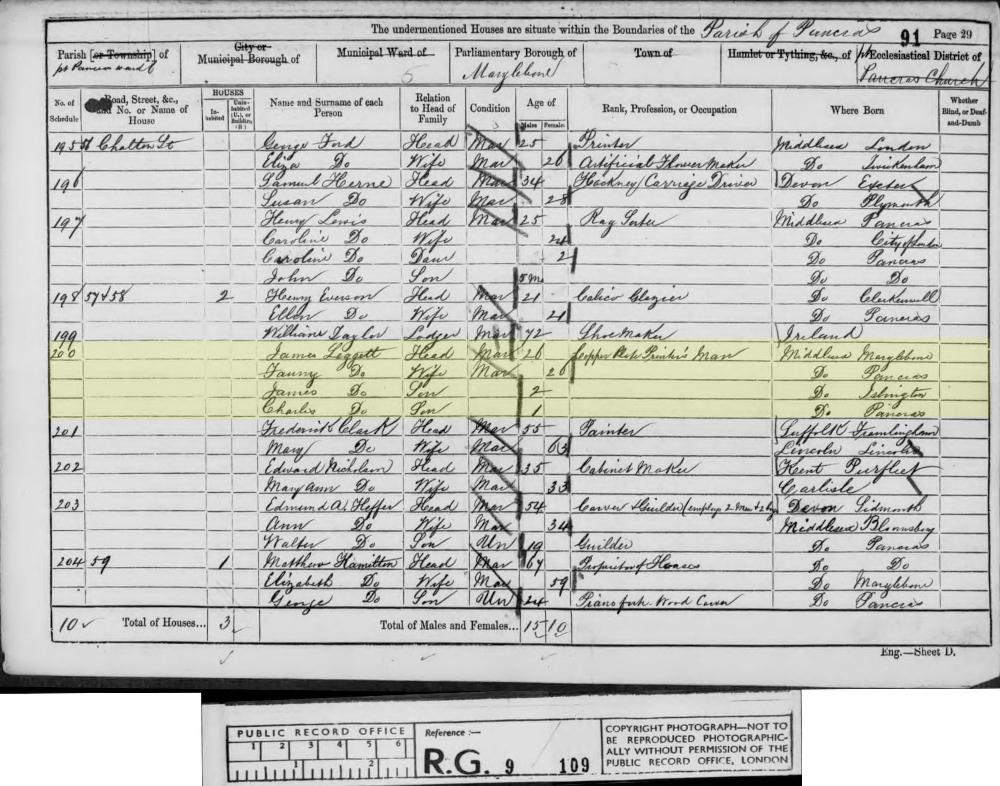 The undermentioned Houses are situate within the Boundaries of the Parish of Pancras 91 Page 29
Parish [or Township] of pt Pancras ward 6
City or Municipal Borough of
Municipal Ward of 5
Parliamentary Borough of Marylebone
Town of
Hamlet or Tything, &c., of
Ecclesiastical District of Pancras Church
No. of Schedule
Road, Street, &c., and No. or Name of House
HOUSES
Inhabited
Uninhabited (U.), or Building (B.)
Name and Surname of each Person
Relation to Head of Family
Condition
Age of
Males
Females
Rank, Profession, or Occupation
Where Born
Whether Blind, or Deaf-and-Dumb
195 56 Chalton St George Ford Head Mar 25 Printer Middlesex London
Eliza Do Wife Mar 26 Artificial Flower Maker Do Twickenham
196 Samuel Herne Head Mar 34 Hackney Carriage Driver Devon Exeter
Susan Do Wife Mar 28 Do Plymouth
197 Henry Lewis Head Mar 25 Rag Sorter Middlesex Pancras
Caroline Do Wife 24 Do City of London
Caroline Do Daur 2 Do Pancras
John Do Son 5 Mo Do Do
198 57 & 58 2 Henry Everson Head Mar 21 Calico Glazier Do Clerkenwell
Ellen Do Wife Mar 21 Do Pancras
199 William Taylor Lodger Mar 72 Shoe Maker Ireland
200 James Leggett Head Mar 26 Copper Plate Printer's Man Middlesex Marylebone
Fanny Do Wife Mar 26 Do Pancras
James Do Son 2 Do Islington
Charles Do Son 1 Do Pancras
201 Frederick Clark Head Mar 55 Painter Suffolk Framlingham
Mary Do Wife Mar 63 Lincoln Lincoln
202 Edward Head Mar 35 Cabinet Maker Kent Purfleet
Mary Ann Do Wife Mar 33 Carlisle
203 Edmund A. Heffer Head Mar 54 Carver & Guilder (employs 2 Men & 2 boys) Devon Sidmouth
Ann Do Wife Mar 34 Middlesex Bloomsbury
Walter Do Son Un 19 Guilder Do Pancras
204 59 1 Matthew Hamilton Head Mar 67 Proprietor of Houses Do Do
Elizabeth Do Wife Mar 59 Do Marylebone
George Do Son Un 24 Pianoforte Wood Carver Do Pancras
10 Total of Houses... 3 Total of Males and Females... 15 10
Eng.—Sheet D.
PUBLIC RECORD OFFICE
1 2 3 4 5 6
1 2
Reference :—
R.G. 9 / 109
COPYRIGHT PHOTOGRAPH—NOT TO
BE REPRODUCED PHOTOGRAPHIC-
ALLY WITHOUT PERMISSION OF THE
PUBLIC RECORD OFFICE, LONDON